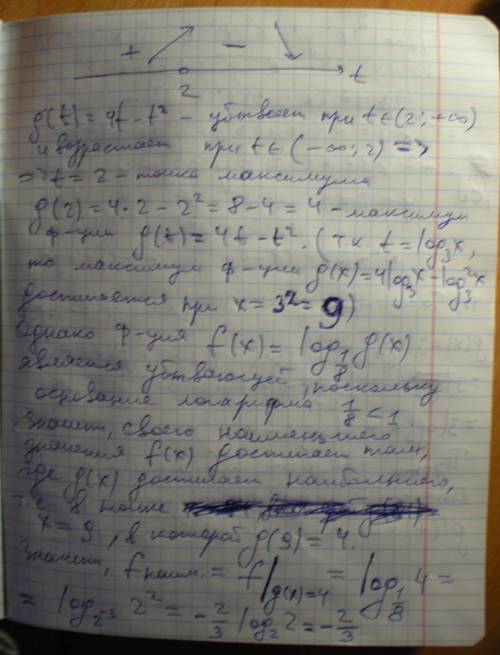 + − t
2
g(t) = 4t - t² - убывает при t ∈ (2; +∞)
и возрастает при t ∈ (-∞; 2) =>
=> t = 2 - точка максимума
g(2) = 4·2 - 2² = 8 - 4 = 4 - максимум
ф-ции g(t) = 4t - t². (т.к. t = log₃x,
то максимум ф-ции g(x) = 4log₃x - log₃²x
достигается при x = 3² = 9)
Однако ф-ция f(x) = log_{1/8} g(x)
является убывающей, поскольку
основание логарифма 1/8 < 1
Значит, своего наименьшего
значения f(x) достигает там,
где g(x) достигает наибольшего,
т.е. в точке
x = 9, в которой g(9) = 4.
Значит, f наим. = f|_{g(x)=4} = log_{1/8} 4 =
= log_{2⁻³} 2² = -2/3 log₂ 2 = -2/3